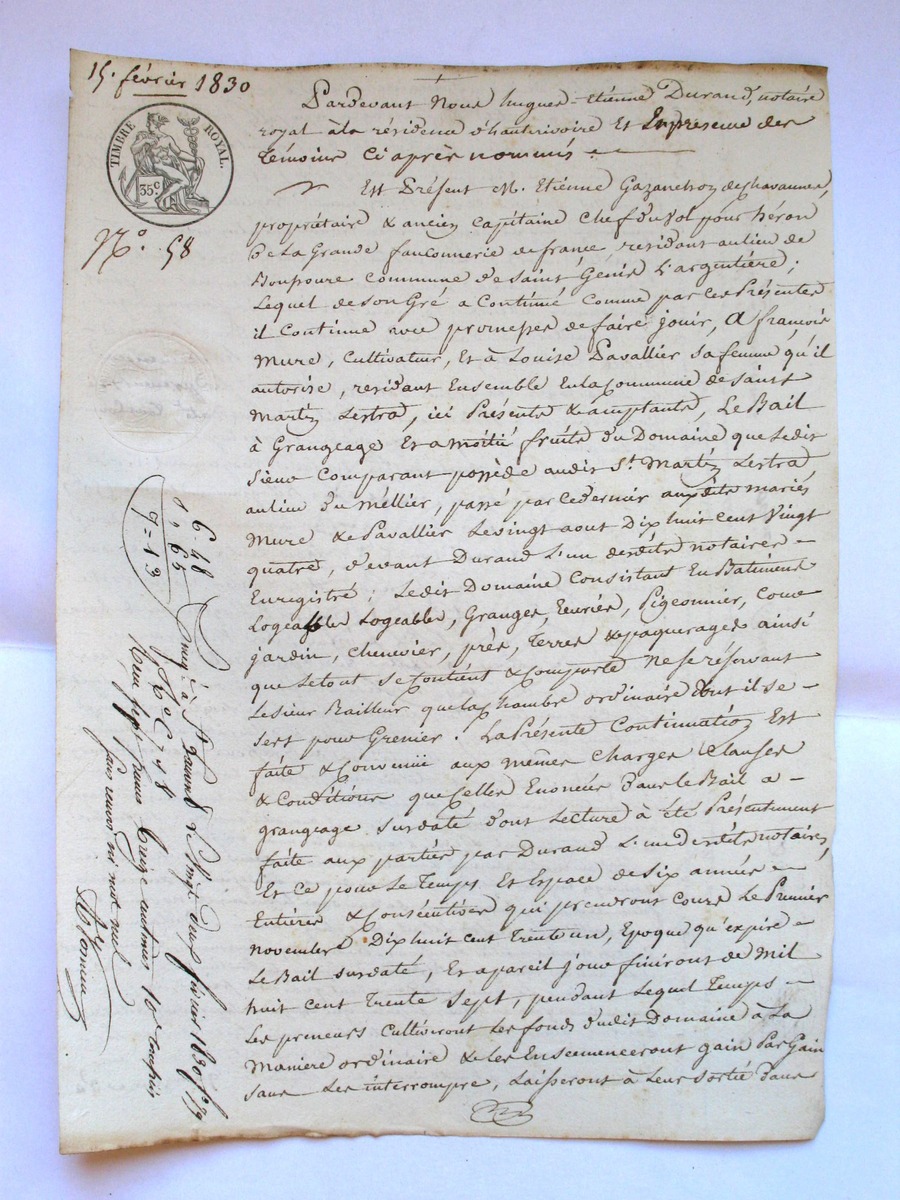 15. février 1830
TIMBRE ROYAL.
35 c
N.° 58
Pardevant Nous hugues-Etienne Durand, notaire
royal à la résidence d'hauterivoire Et En présence des
Témoins Ci après nommés.
Est Présent M. Etienne Gazanchon de chavannes,
propriétaire & ancien Capitaine Chef du vol pour héron
De La Grande fauconnerie de france, résidant au lieu de
Bonpoure commune de Saint Genis L'argentière;
Lequel de son Gré a Continué Comme par ces Présentes
il Continue avec promesses de faire jouir, A françois
Mure, Cultivateur, Et à Louise Pavallier sa femme qu'il
autorise, résidant Ensemble En la Commune de Saint
Martin Lestra, ici Présents & acceptants, Le Bail
à Grangeage Et a moitié fruits du Domaine que Ledit
Sieur Comparant possède audit St. Martin Lestra
au lieu du Méllier, passé par ce dernier auxdits mariés
Mure & Pavallier Le vingt aout Dix huit cent Vingt
quatre, devant Durand L'un desdits notaires
Enregistré; Ledit Domaine Consistant En Batiments
Logeables, Granges, Ecuries, Pigeonnier, Cour
jardin, Chenevier, près, Terres & paquerages ainsi
que Le tout se Contient & Comporte Ne se réservant
Le sieur Bailleur que la Chambre ordinaire dont il se
sert pour Grenier. La Présente Continuation Est
faite & Convenüe aux mêmes Charges Clauses
& Conditions que Celles Enoncées Dans le Bail a
grangeage Susdaté dont Lecture à été Présentement
faite aux parties par Durand L'un desdits notaires,
Et Ce pour Le Temps Et Espace de Six années
Entières & Consécutives qui prendront Cours Le Premier
novembre Dix huit Cent Trente un, Epoque qu'expire
Le Bail susdaté, Et a pareil jour finiront de Mil
huit cent Trente Sept, pendant Lequel Temps
Les preneurs Cultiveront Les fonds dudit Domaine à La
Manière ordinaire & les Ensemenceront gain Par Gain
sans Les interrompre, Laisseront à Leur sortie dans
6 - 48
65
7 = 13
Enregé à St Laurent Le vingt deux février 1830 f° 59
R° C 7 & 8
Reçu sept francs treize centimes 10e compris
sans renvoi ni mot nul